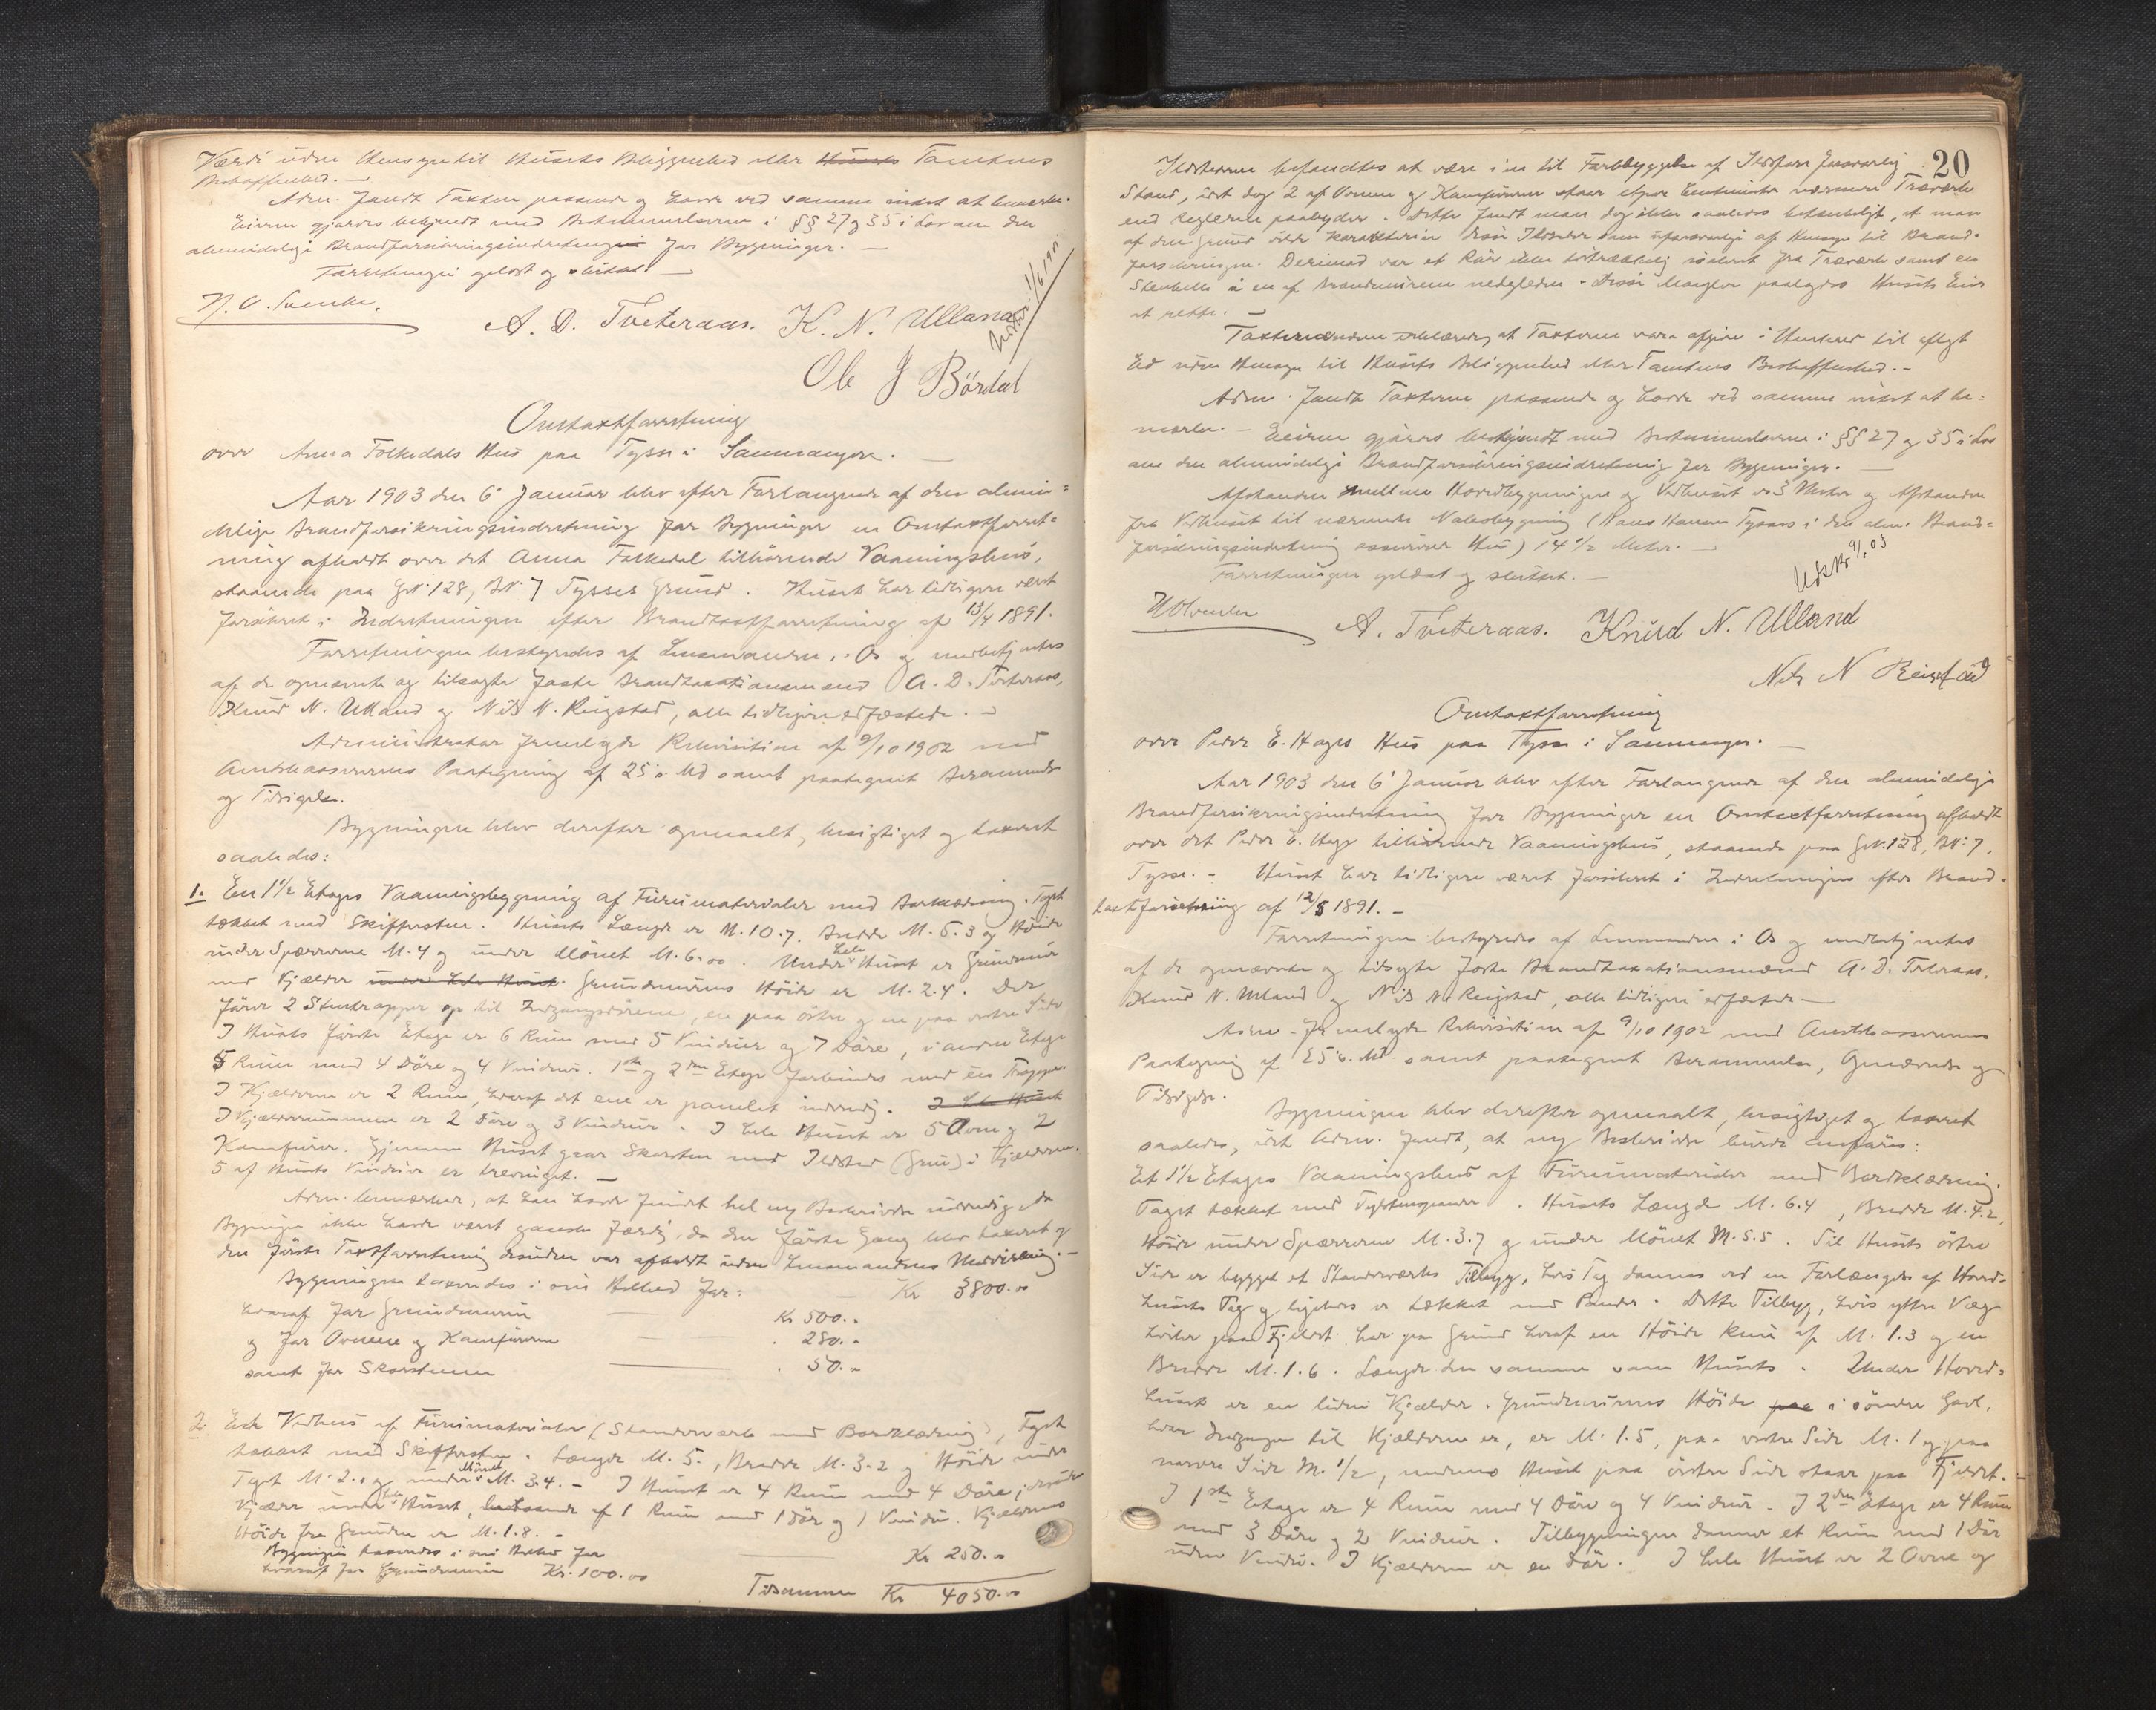 Værdi uden Hensyn til Husets Beliggenhed eller Husets Tomtens
Beskaffenhed. —
Adm. fandt Taxten passende og havde ved samme intet at bemærke.
Eieren gjøres bekjendt med Bestemmelserne i §§ 27 og 35 i Lov om den
almindelige Brandforsikringsindretning for Bygninger. —
Forretningen oplæst og sluttet. —
A. D. Tveteraas. K. N. Ulland
Ole J Børdal
Omtaxtforretning
over Anna Folkedals Hus paa Tysse i Samnanger. —
Aar 1903 den 6' Januar blev efter Forlangende af den almin=
delige Brandforsikringsindretning for Bygninger en Omtaxtforret=
ning afholdt over det Anna Folkedal tilhørende Vaaningshus,
staaende paa GNr. 128, BNr. 7 Tysses Grund. Huset har tidligere været
forsikret i Indretningen efter Brandtaxtforretning af 13/4 1891.
Forretningen bestyredes af Lensmanden i Os og medbetjentes
af de opnævnte og tilsagte faste Brandtaxationsmænd A. D. Tveteraas,
Knud N. Ulland og Nils N. Reigstad, alle tidligere edfæstede. —
Administrator fremlagde Rekvisition af 9/10 1902 med
Amtskassererens Paategning af 25 s. Md samt paategnet Berammelse
og Tilsigelse.
Bygningen blev derefter opmaalt, besigtiget og taxeret
saaledes:
1. En 1½ Etages Vaaningsbygning af Furumaterialer med Bordklædning. Taget
tækket med Skiffersten. Husets Længde er M. 10.7, Bredde M. 6.3 og Høide
under Spærrerne M. 4 og under Mønet M. 6.00. Under hele Huset er Grundmur
med Kjælder under hele Huset. Grundmurens Høide er M. 2.4. Der
fører 2 Stentrapper op til Indgangsdørene, en paa østre og en paa vestre Side
I Husets første Etage er 6 Rum med 5 Vinduer og 7 Døre, i anden Etage
5 Rum med 4 Døre og 4 Vinduer. 1ste og 2den Etage forbindes med en Trappe.
I Kjælderen er 2 Rum, hvoraf det ene er panelet indvendig. I hele Huset
I Kjælderrummene er 2 Døre og 3 Vinduer. I hele Huset er 5 Ovne og 2
Komfurer. Gjennem Huset gaar Skorsten med Ildsted (Grue) i Kjælderen.
5 af Husets Vinduer er trefaget. —
Adm. bemærker, at han havde fundet hel ny Beskrivelse nødvendig da
Bygningen ikke havde været ganske færdig, da den første Gang blev taxeret og
den første Taxtforretning desuden var afholdt uden Lensmandens Medvirkning. —
Bygningen taxeredes i sin Helhed for: — Kr 3800.00
hvoraf for Grundmuren — Kr 500.-
og for Ovnene og Komfurerne — 280.-
samt for Skorstenen — 50.-
2. Et Vedhus af Furumaterialer (Standerværk med Bordklædning), Taget
tækket med Skiffersten. Længde M. 5., Bredde M. 3.2 og Høide under
Taget M. 2.. og under Mønet M. 3.4. - I Huset er 4 Rum med 4 Døre, desuden
Kjælder under hele Huset, bestaaende af 1 Rum med 1 Dør og 1 Vindu. Kjælderens
Høide fra Grunden er M. 1.8. -
Bygningen taxeredes i sin Helhed for — Kr 250.00
hvoraf for Grundmuren Kr. 100.00
Tilsammen Kr 4050.00
20
Ildstederne befandtes at være i en til Forebyggelse af Ildsfare forsvarlig
Stand, idet dog 2 af Ovnene og Komfurerne staar et par Centimeter nærmere Træværk
end Reglerne paabyder. Dette fandt man dog ikke saaledes betænkeligt, at man
af den Grund vilde karakterisere disse Ildsteder som uforsvarlige af Hensyn til Brand-
forsikringen. Derimod var et Rør ikke tilstrækkelig isoleret fra Træværk samt en
Stenhelle i en af Brandmurene nedgleden. Disse Mangler paalagdes Husets Eier
at rette. —
Taxtmændene erklærede, at Taxterne vare afgivne i Henhold til aflagt
Ed uden Hensyn til Husets Beliggenhed eller Tomtens Beskaffenhed. -
Adm. fandt Taxterne passende og havde ved samme intet at be=
mærke. — Eieren gjøres bekjendt med Bestemmelserne i §§ 27 og 35 i Lov
om den almindelige Brandforsikringsindretning for Bygninger. —
Afstanden mellem Hovedbygningen og Vedhuset er 3 Meter og Afstanden
fra Vedhuset til nærmeste Nabobygning (Hans Hansen Tysses i den alm. Brand=
forsikringsindretning assurerede Hus) 14½ Meter. —
Forretningen oplæst og sluttet. —
Udskr 9/1 03
A. Tveteraas. Knud N. Ulland
Nils N Reigstad
Omtaxtforretning
over Peder E. Hages Hus paa Tysse i Samnanger. —
Aar 1903 den 6' Januar blev efter Forlangende af den almindelige
Brandforsikringsindretning for Bygninger en Omtaxtforretning afholdt
over det Peder E. Hage tilhørende Vaaningshus, staaende paa GNr. 128, BNr. 7,
Tysse. - Huset har tidligere været forsikret i Indretningen efter Brand-
taxtforretning af 12/8 1891. -
Forretningen bestyredes af Lensmanden i Os og medbetjentes
af de opnævnte og tilsagte faste Brandtaxationsmænd A. D. Tveteraas,
Knud N. Ulland og Nils N. Reigstad, alle tidligere edfæstede —
Adm. fremlagde Rekvisition af 9/10 1902 med Amtskassererens
Paategning af 25 s. Md. samt paategnet Berammelse, Opnævnelse og
Tilsigelse.
Bygningen blev derefter opmaalt, besigtiget og taxeret
saaledes, idet Adm. fandt, at ny Beskrivelse burde anføres:
Et 1½ Etages Vaaningshus af Furumaterialer med Bordklædning.
Taget tækket med Tagstenspander. Husets Længde M. 6.4, Bredde M. 4.2,
Høide under Spærrerne M. 3.7 og under Mønet M. 5.5. Til Husets østre
Side er bygget et Standerværks Tilbyg, hvis Tag dannes ved en Forlængelse af Hoved-
husets Tag og ligeledes er tækket med Pander. Dette Tilbyg, hvis ydre Væg
hviler paa Fjeldet har paa Grund heraf en Høide kun af M. 1.3 og en
Bredde M. 1.6. Længde den samme som Husets. Under Hoved=
huset er en liden Kjælder. Grundmurens Høide paa i søndre Gavl,
hvor Indgangen til Kjælderen er, er M. 1.5, paa vestre Side M. 1 og paa
nordre Side M. ½, medens Huset paa østre Side staar paa Fjeldet. -
I 1ste Etage er 4 Rum med 4 Døre og 4 Vinduer. I 2den Etage er 4 Rum
med 3 Døre og 2 Vinduer. Tilbygningen danner et Rum med 1 Dør
uden Vindu. I Kjælderen er en Dør. I hele Huset er 2 Ovne og